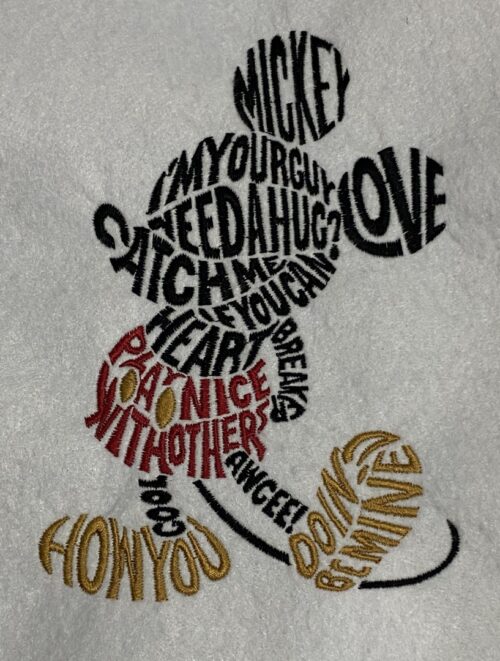 MICKEY
I'M YOUR GUY
LOVE
NEED A HUG?
CATCH ME
IF YOU CAN!
HEART
BREAKS
PLAY NICE
WITH OTHERS
AW GEE!
COOL
HOW YOU
DOIN'?
BE MINE